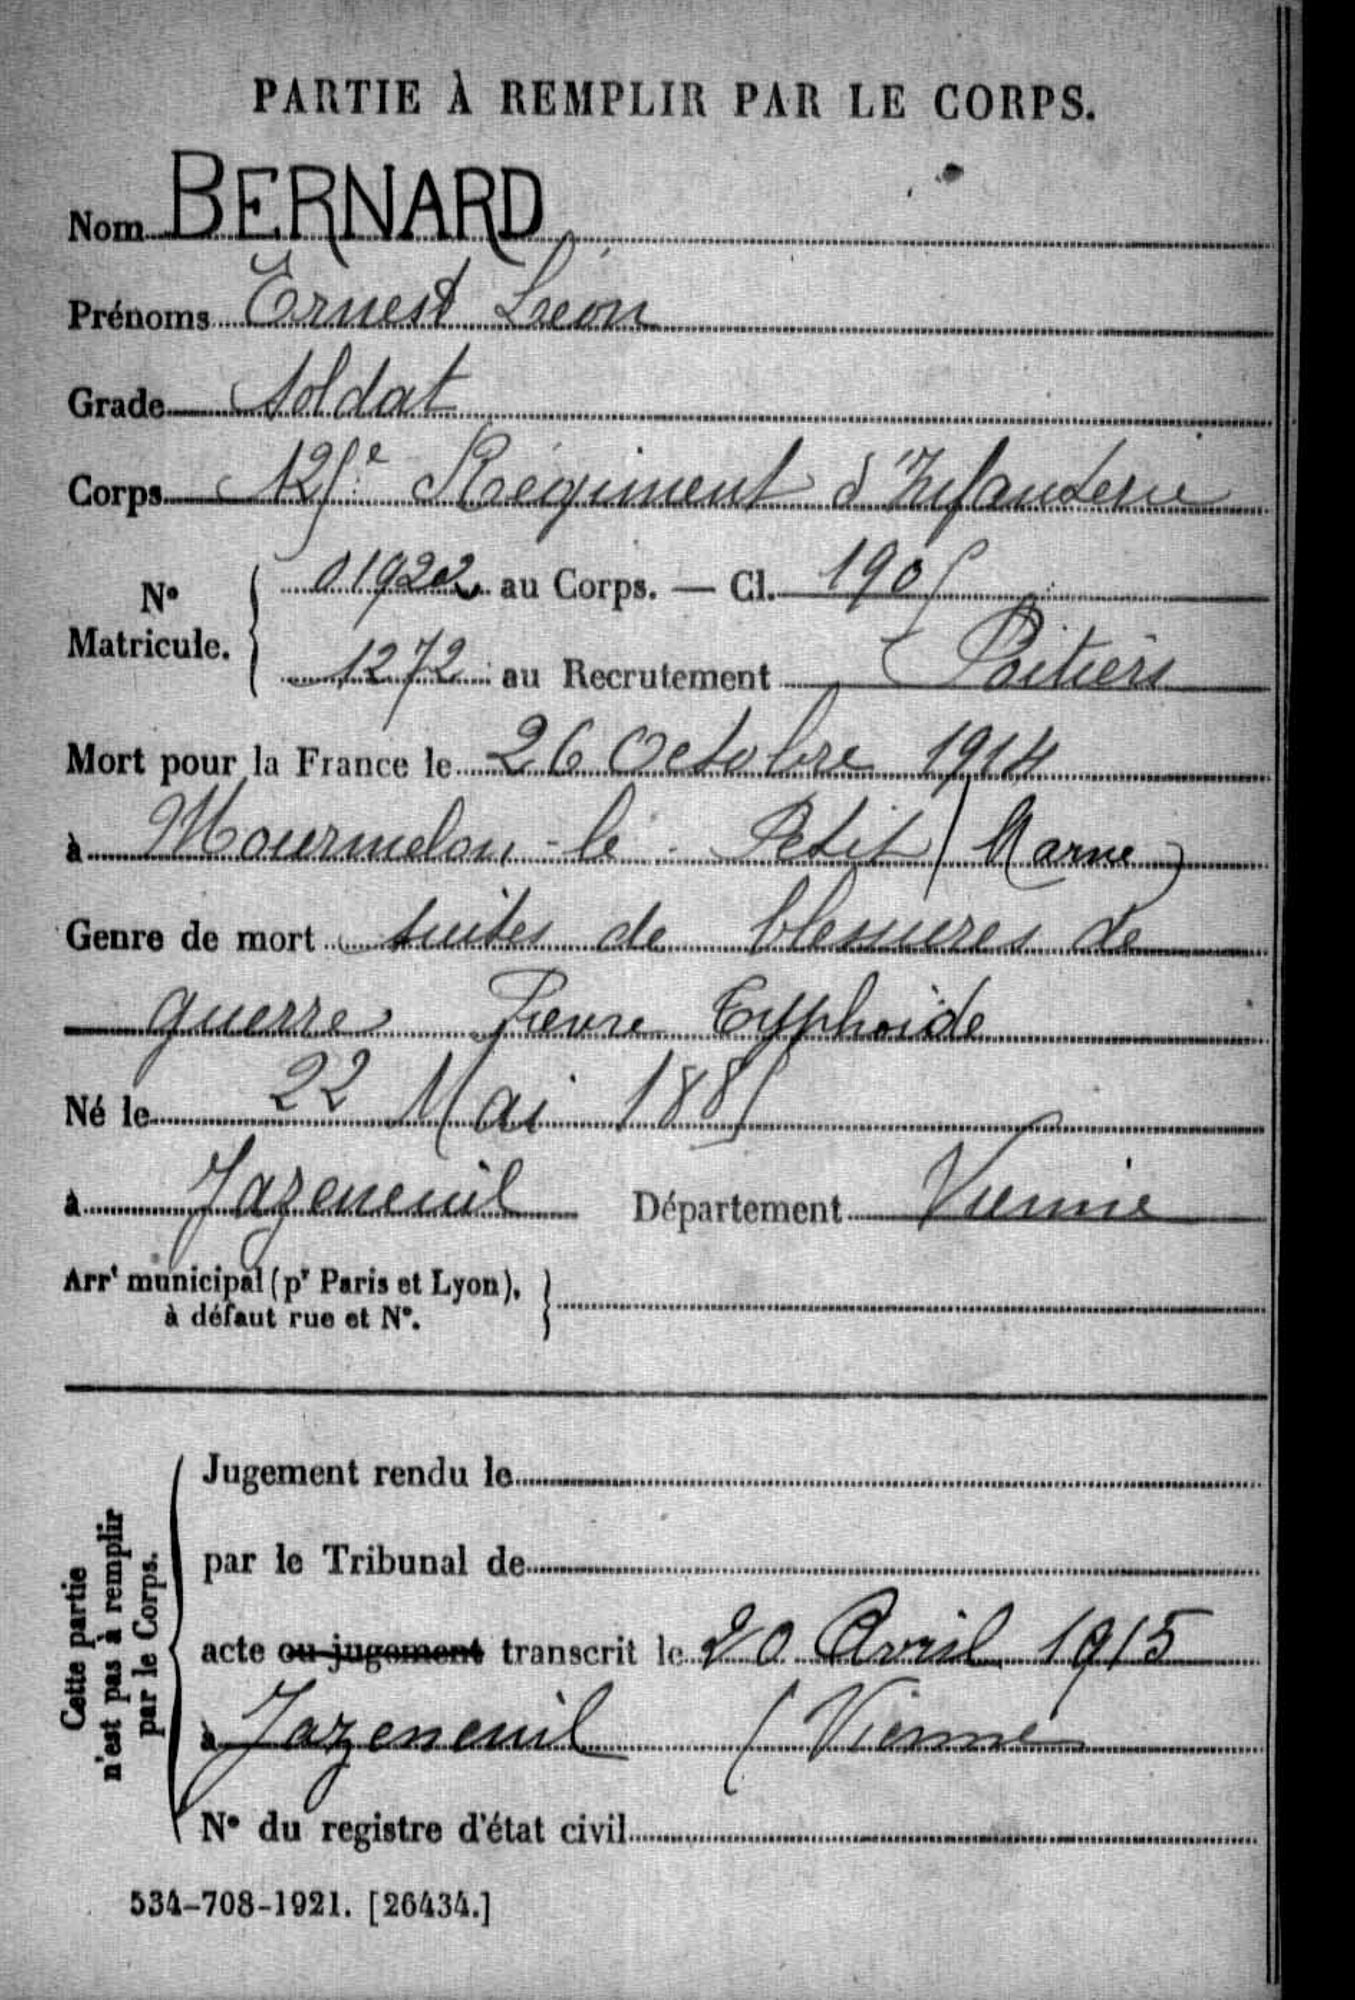 PARTIE À REMPLIR PAR LE CORPS.
Nom BERNARD
Prénoms Ernest Léon
Grade Soldat
Corps 125e Régiment d'Infanterie
N° Matricule. 01922 au Corps. — Cl. 1905
1272 au Recrutement Poitiers
Mort pour la France le 26 Octobre 1914
à Mourmelon-le-Petit (Marne)
Genre de mort suites de blessures de
guerre Fièvre Typhoïde
Né le 22 Mai 1885
à Jazeneuil Département Vienne
Arrt municipal (pr Paris et Lyon),
à défaut rue et N°.
Cette partie
n'est pas à remplir
par le Corps.
Jugement rendu le
par le Tribunal de
acte ou jugement transcrit le 20 Avril 1915
à Jazeneuil (Vienne
N° du registre d'état civil
534-708-1921. [26434.]